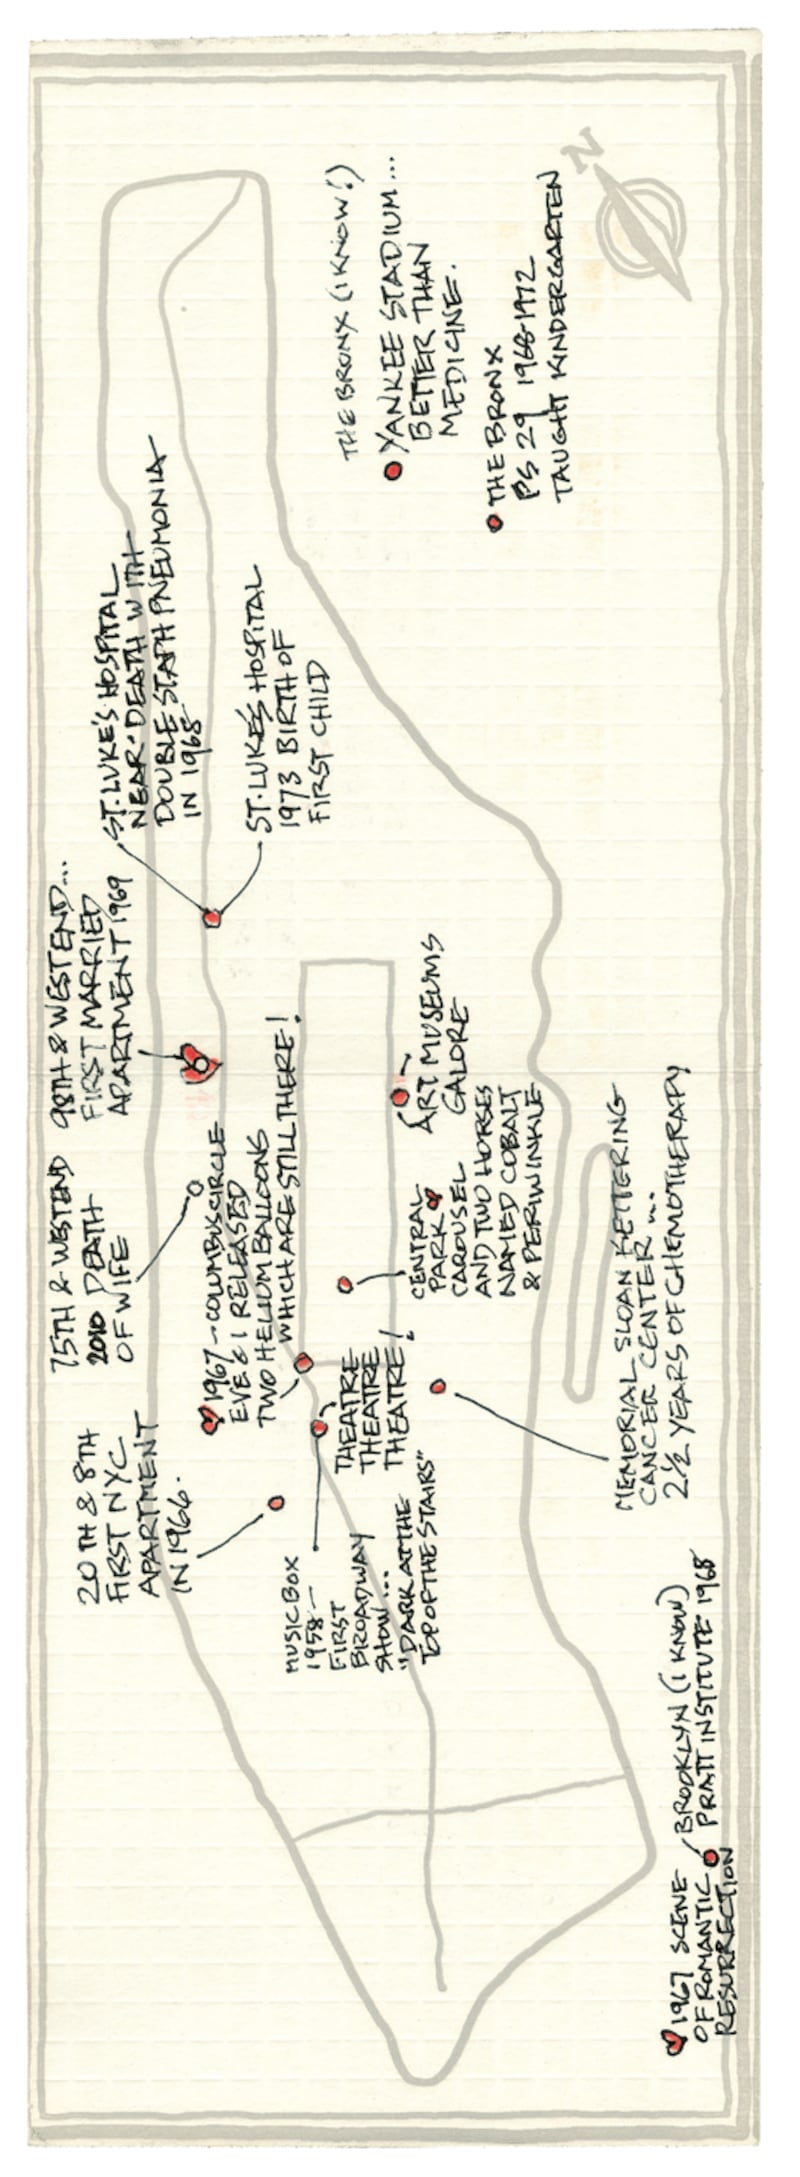 N
THE BRONX (I KNOW!)
YANKEE STADIUM...
BETTER THAN
MEDICINE.
THE BRONX
PS 29 1968-1972
TAUGHT KINDERGARTEN
ST. LUKE'S HOSPITAL
NEAR-DEATH WITH
DOUBLE STAPH PNEUMONIA
IN 1968
ST. LUKE'S HOSPITAL
1973 BIRTH OF
FIRST CHILD
98TH & WESTEND...
FIRST MARRIED
APARTMENT 1969
75TH & WESTEND
2010 DEATH
OF WIFE
1967 - COLUMBUS CIRCLE
EVE & I RELEASED
TWO HELIUM BALLOONS
WHICH ARE STILL THERE!
ART MUSEUMS
GALORE
CENTRAL
PARK
CAROUSEL
AND TWO HORSES
NAMED COBALT
& PERIWINKLE
THEATRE
THEATRE
THEATRE!
MEMORIAL SLOAN KETTERING
CANCER CENTER...
2½ YEARS OF CHEMOTHERAPY
20TH & 8TH
FIRST NYC
APARTMENT
IN 1966.
MUSIC BOX
1958 -
FIRST
BROADWAY
SHOW...
"DARK AT THE
TOP OF THE STAIRS"
BROOKLYN (I KNOW)
PRATT INSTITUTE 1968
1967 SCENE
OF ROMANTIC
RESURRECTION